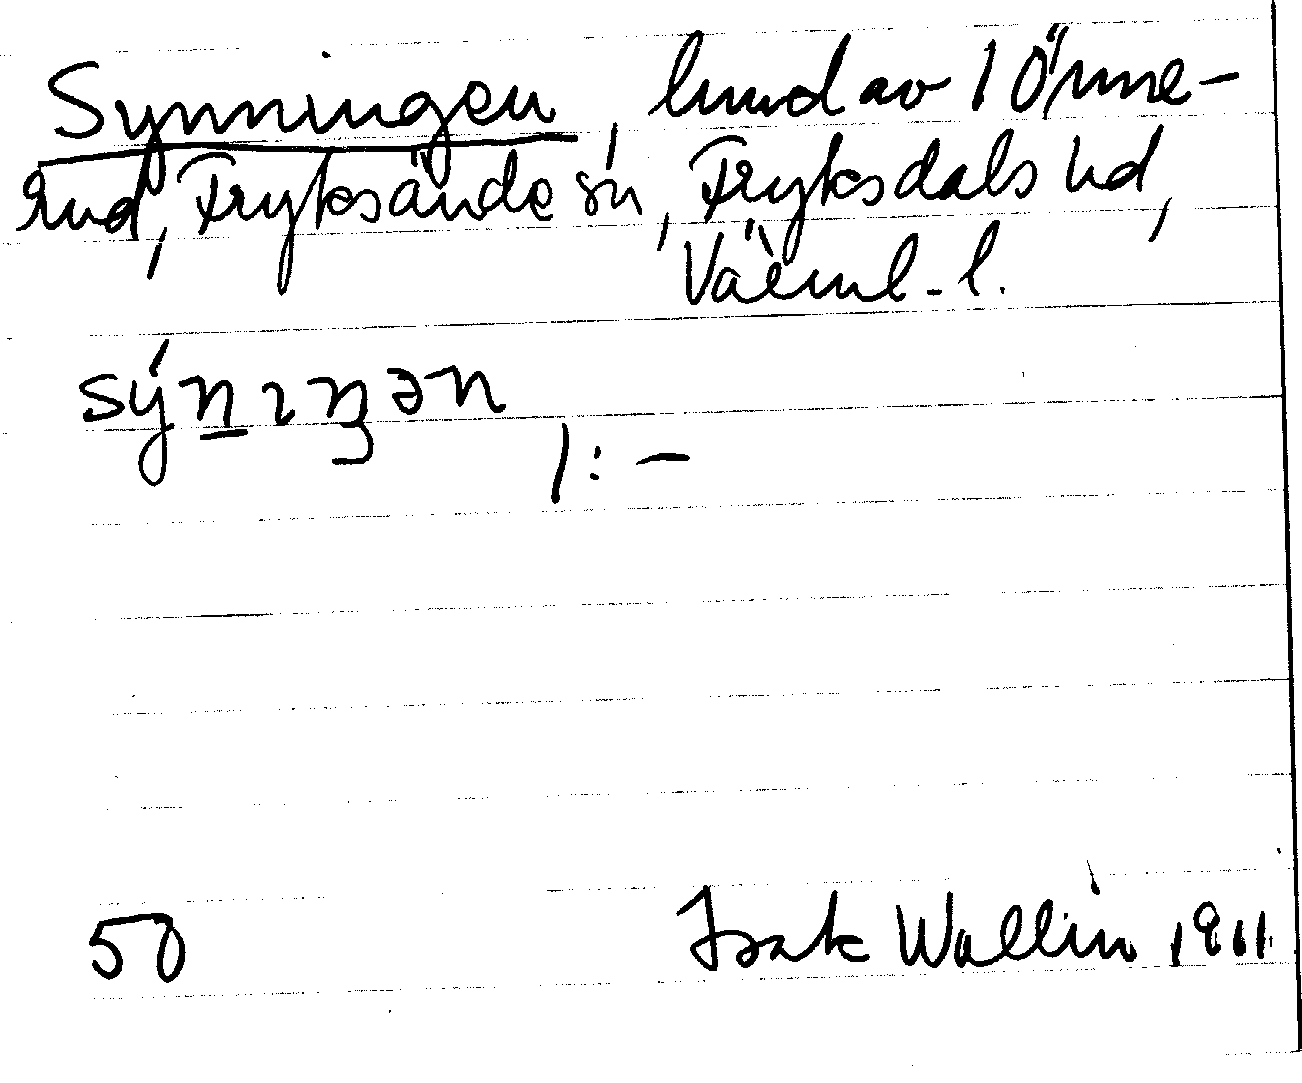 Synningen, hmd av 1 Önne-
rud, Fryksände sn, Fryksdals hd,
Värml. l.
sýn̲ıŋən
1: –
50 Isak Wallin 1911